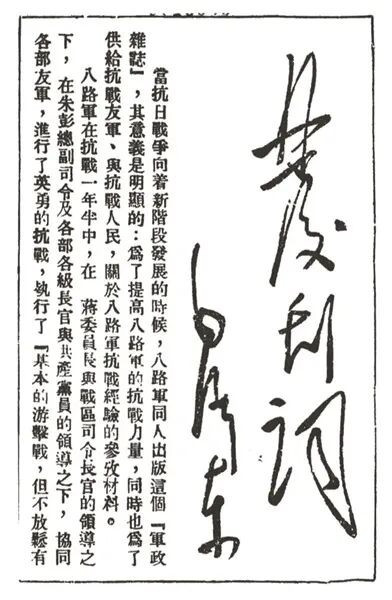 發刊詞
毛澤東
當抗日戰爭向着新階段發展的時候，八路軍同人出版這個『軍政
雜誌』，其意義是明顯的：爲了提高八路軍的抗戰力量，同時也爲了
供給抗戰友軍、與抗戰人民，關於八路軍抗戰經驗的參攷材料。
八路軍在抗戰一年半中，在　蔣委員長與戰區司令長官的領導之
下，在朱彭總副司令及各部各級長官與共產黨員的領導之下，協同
各部友軍，進行了英勇的抗戰，執行了『基本的游擊戰，但不放鬆有